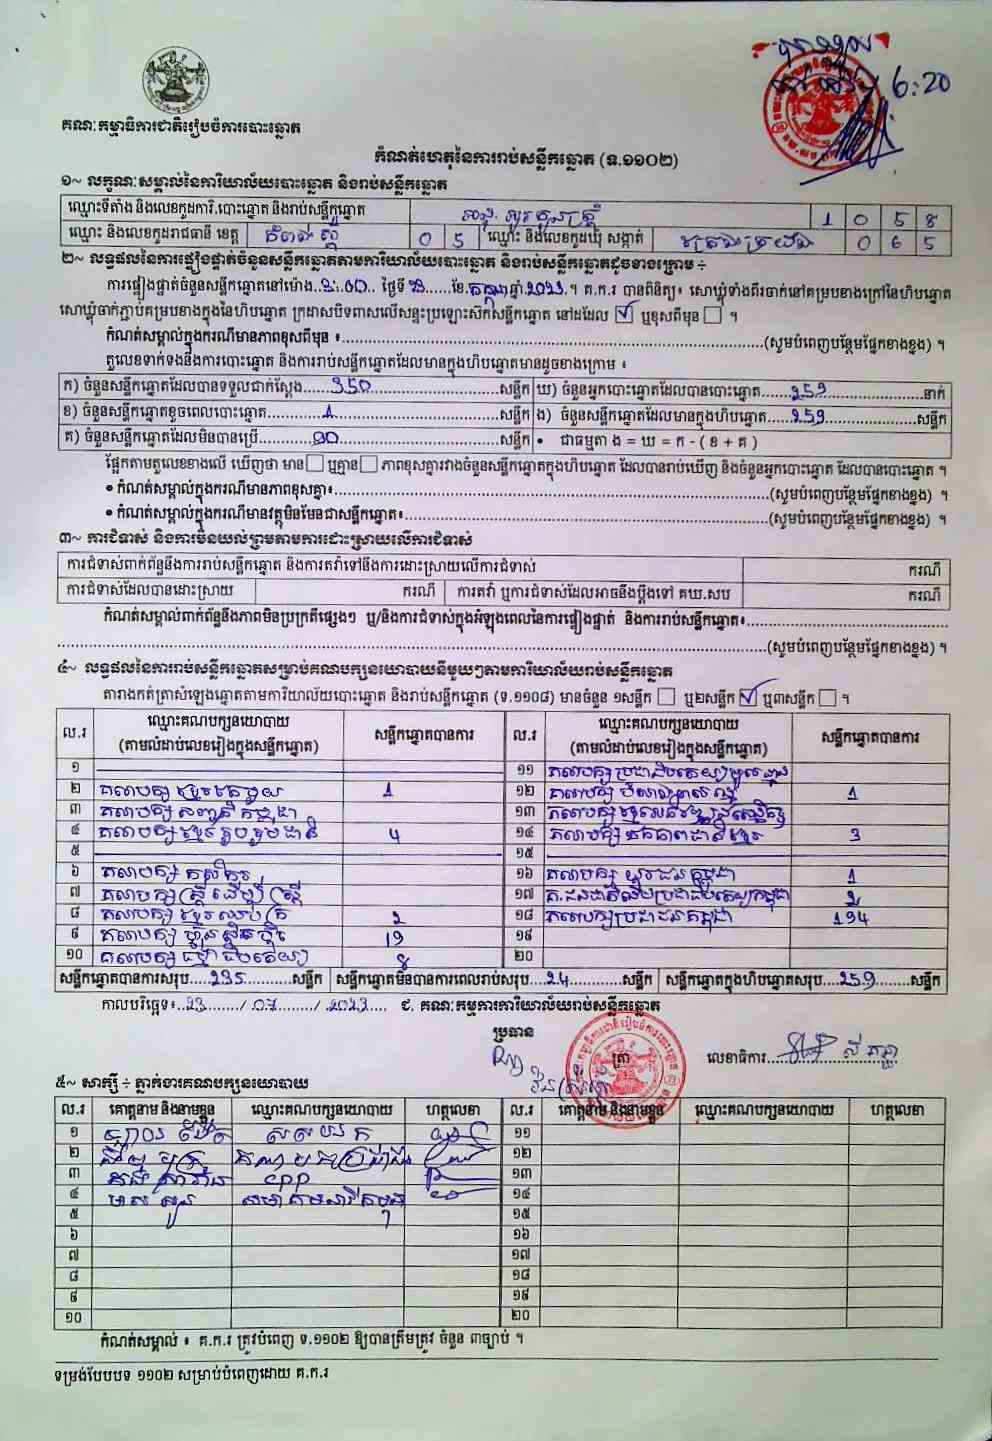 6:20
គណៈកម្មាធិការជាតិរៀបចំការបោះឆ្នោត
កំណត់ហេតុនៃការរាប់សន្លឹកឆ្នោត (ទ.១១០២)
១~ លក្ខណៈសម្គាល់នៃការិយាល័យបោះឆ្នោត និងរាប់សន្លឹកឆ្នោត
ឈ្មោះទីតាំង និងលេខកូដការិ.បោះឆ្នោត និងរាប់សន្លឹកឆ្នោត 1 0 5 8
ឈ្មោះ និងលេខកូដរាជធានី ខេត្ត កំពង់ស្ពឺ 0 5 ឈ្មោះ និងលេខកូដឃុំ សង្កាត់ 0 6 5
២~ លទ្ធផលនៃការផ្ទៀងផ្ទាត់ចំនួនសន្លឹកឆ្នោតតាមការិយាល័យបោះឆ្នោត និងរាប់សន្លឹកឆ្នោតដូចខាងក្រោម ÷
ការផ្ទៀងផ្ទាត់ចំនួនសន្លឹកឆ្នោតនៅម៉ោង ថ្ងៃទី ខែ កក្កដា ឆ្នាំ 2023 ។ គ.ក.រ បានពិនិត្យ៖ សោឃ្លុំទាំងពីរចាក់នៅគម្របខាងក្រៅនៃហិបឆ្នោត
សោឃ្លុំចាក់ភ្ជាប់គម្របខាងក្នុងនៃហិបឆ្នោត ក្រដាសបិទពាសលើសន្ទះប្រឡោះស៊កសន្លឹកឆ្នោត នៅដដែល ☑ ឬខុសពីមុន ☐ ។
កំណត់សម្គាល់ក្នុងករណីមានភាពខុសពីមុន ៖ (សូមបំពេញបន្ថែមផ្នែកខាងខ្នង) ។
តួលេខទាក់ទងនឹងការបោះឆ្នោត និងការរាប់សន្លឹកឆ្នោតដែលមានក្នុងហិបឆ្នោតមានដូចខាងក្រោម ៖
ក) ចំនួនសន្លឹកឆ្នោតដែលបានទទួលជាក់ស្តែង 350 សន្លឹក ឃ) ចំនួនអ្នកបោះឆ្នោតដែលបានបោះឆ្នោត 259 នាក់
ខ) ចំនួនសន្លឹកឆ្នោតខូចពេលបោះឆ្នោត 1 សន្លឹក ង) ចំនួនសន្លឹកឆ្នោតដែលមានក្នុងហិបឆ្នោត 259 សន្លឹក
គ) ចំនួនសន្លឹកឆ្នោតដែលមិនបានប្រើ 90 សន្លឹក • ជាធម្មតា ង = ឃ = ក - ( ខ + គ )
ផ្អែកតាមតួលេខខាងលើ ឃើញថា មាន ☐ ឬគ្មាន ☐ ភាពខុសគ្នារវាងចំនួនសន្លឹកឆ្នោតក្នុងហិបឆ្នោត ដែលបានរាប់ឃើញ និងចំនួនអ្នកបោះឆ្នោត ដែលបានបោះឆ្នោត ។
• កំណត់សម្គាល់ក្នុងករណីមានភាពខុសគ្នា៖ (សូមបំពេញបន្ថែមផ្នែកខាងខ្នង) ។
• កំណត់សម្គាល់ក្នុងករណីមានវត្ថុមិនមែនជាសន្លឹកឆ្នោត៖ (សូមបំពេញបន្ថែមផ្នែកខាងខ្នង) ។
៣~ ការជំទាស់ និងការមិនយល់ព្រមតាមការដោះស្រាយលើការជំទាស់
ការជំទាស់ពាក់ព័ន្ធនឹងការរាប់សន្លឹកឆ្នោត និងការតវ៉ាទៅនឹងការដោះស្រាយលើការជំទាស់ ករណី
ការជំទាស់ដែលបានដោះស្រាយ ករណី ការតវ៉ា ឬការជំទាស់ដែលអាចនឹងប្តឹងទៅ គឃ.សប ករណី
កំណត់សម្គាល់ពាក់ព័ន្ធនឹងភាពមិនប្រក្រតីផ្សេងៗ ឬ/និងការជំទាស់ក្នុងអំឡុងពេលនៃការផ្ទៀងផ្ទាត់ និងការរាប់សន្លឹកឆ្នោត៖
(សូមបំពេញបន្ថែមផ្នែកខាងខ្នង) ។
៤~ លទ្ធផលនៃការរាប់សន្លឹកឆ្នោតសម្រាប់គណបក្សនយោបាយនីមួយៗតាមការិយាល័យរាប់សន្លឹកឆ្នោត
តារាងកត់ត្រាសំឡេងឆ្នោតតាមការិយាល័យបោះឆ្នោត និងរាប់សន្លឹកឆ្នោត (ទ.១១០៨) មានចំនួន ១សន្លឹក ☐ ឬ២សន្លឹក ☑ ឬ៣សន្លឹក ☐ ។
ល.រ ឈ្មោះគណបក្សនយោបាយ (តាមលំដាប់លេខរៀងក្នុងសន្លឹកឆ្នោត) សន្លឹកឆ្នោតបានការ ល.រ ឈ្មោះគណបក្សនយោបាយ (តាមលំដាប់លេខរៀងក្នុងសន្លឹកឆ្នោត) សន្លឹកឆ្នោតបានការ
១ ១១ គណបក្ស
២ គណបក្ស ខ្មែរតែមួយ 1 ១២ គណបក្ស 1
៣ គណបក្ស សញ្ជាតិកម្ពុជា ១៣ គណបក្ស
៤ គណបក្ស ខ្មែររួបរួមជាតិ 4 ១៤ គណបក្ស ឯកភាពជាតិខ្មែរ 3
៥ ១៥
៦ គណបក្ស កសិករ ១៦ គណបក្ស យុវជនកម្ពុជា 1
៧ គណបក្ស ស្ត្រីដើម្បីស្ត្រី ១៧ គ.ជនជាតិដើមប្រជាធិបតេយ្យកម្ពុជា 2
៨ គណបក្ស 2 ១៨ គណបក្សប្រជាជនកម្ពុជា 194
៩ គណបក្ស ហ្វ៊ុនស៊ិនប៉ិច 19 ១៩
១០ គណបក្ស ធម្មាធិបតេយ្យ 8 ២០
សន្លឹកឆ្នោតបានការសរុប 235 សន្លឹក សន្លឹកឆ្នោតមិនបានការពេលរាប់សរុប 24 សន្លឹក សន្លឹកឆ្នោតក្នុងហិបឆ្នោតសរុប 259 សន្លឹក
កាលបរិច្ឆេទ៖ 23 / 07 / 2023 ជ. គណៈកម្មការការិយាល័យរាប់សន្លឹកឆ្នោត
ប្រធាន ត្រា លេខាធិការ
៥~ សាក្សី ÷ ភ្នាក់ងារគណបក្សនយោបាយ
ល.រ គោត្តនាម និងនាមខ្លួន ឈ្មោះគណបក្សនយោបាយ ហត្ថលេខា ល.រ គោត្តនាម និងនាមខ្លួន ឈ្មោះគណបក្សនយោបាយ ហត្ថលេខា
១ ១១
២ ១២
៣ CPP ១៣
៤ ១៤
៥ ១៥
៦ ១៦
៧ ១៧
៨ ១៨
៩ ១៩
១០ ២០
កំណត់សម្គាល់ ៖ គ.ក.រ ត្រូវបំពេញ ទ.១១០២ ឱ្យបានត្រឹមត្រូវ ចំនួន ៣ច្បាប់ ។
ទម្រង់បែបបទ ១១០២ សម្រាប់បំពេញដោយ គ.ក.រ